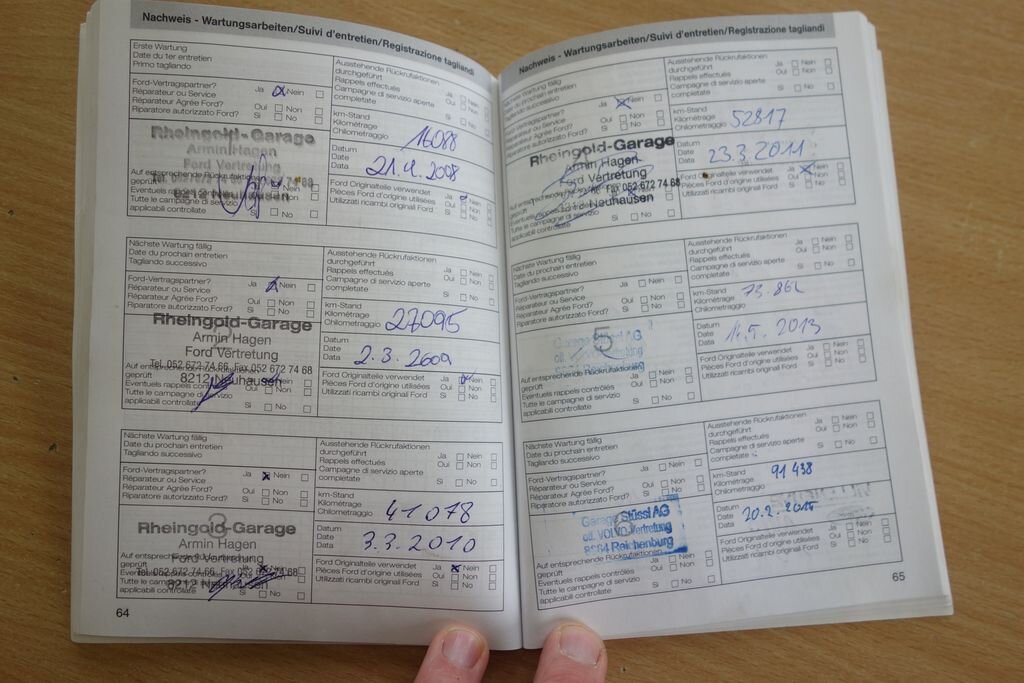 Nachweis - Wartungsarbeiten/Suivi d'entretien/Registrazione tagliandi
Erste Wartung
Date du 1er entretien
Primo tagliando
Ausstehende Rückrufaktionen
durchgeführt Ja Nein
Rappels effectués Oui Non
Campagne di servizio aperte Si No
completate
Ford-Vertragspartner? Ja Nein
Réparateur ou Service
Réparateur Agrée Ford? Oui Non
Riparatore autorizzato Ford? Si No
km-Stand
Kilométrage
Chilometraggio 16088
Rheingold-Garage
Armin Hagen
Ford Vertretung
8212 Neuhausen
Datum
Date
Data 21.4.2008
Auf entsprechende
geprüft
Eventuels rappels
Tutte le campagne di servizio
applicabili controllate
Si No
Ford Originalteile verwendet Ja Nein
Pièces Ford d'origine utilisées Oui Non
Utilizzati ricambi original Ford Si No
Nächste Wartung fällig
Date du prochain entretien
Tagliando successivo
Ausstehende Rückrufaktionen
durchgeführt Ja Nein
Rappels effectués Oui Non
Campagne di servizio aperte Si No
completate
Ford-Vertragspartner? Ja Nein
Réparateur ou Service
Réparateur Agrée Ford? Oui Non
Riparatore autorizzato Ford? Si No
km-Stand
Kilométrage
Chilometraggio 27095
Rheingold-Garage
Armin Hagen
Ford Vertretung
Tel. 052 672 74 66 Fax 052 672 74 68
8212 Neuhausen
Datum
Date
Data 2.3.2009
Auf entsprechende
geprüft
Eventuels rappels
Tutte le campagne di servizio
applicabili controllate
Si No
Ford Originalteile verwendet Ja Nein
Pièces Ford d'origine utilisées Oui Non
Utilizzati ricambi original Ford Si No
Nächste Wartung fällig
Date du prochain entretien
Tagliando successivo
Ausstehende Rückrufaktionen
durchgeführt Ja Nein
Rappels effectués Oui Non
Campagne di servizio aperte Si No
completate
Ford-Vertragspartner? Ja Nein
Réparateur ou Service
Réparateur Agrée Ford? Oui Non
Riparatore autorizzato Ford? Si No
km-Stand
Kilométrage
Chilometraggio 41078
3
Rheingold-Garage
Armin Hagen
Ford Vertretung
Tel. 052 672 74 66 Fax 052 672 74 68
8212 Neuhausen
Datum
Date
Data 3.3.2010
Auf entsprechende
geprüft
Eventuels rappels
Tutte le campagne di servizio
applicabili controllate
Si No
Ford Originalteile verwendet Ja Nein
Pièces Ford d'origine utilisées Oui Non
Utilizzati ricambi original Ford Si No
64
Nachweis - Wartungsarbeiten/Suivi d'entretien/Registrazione tagliandi
Nächste Wartung fällig
Date du prochain entretien
Tagliando successivo
Ausstehende Rückrufaktionen
durchgeführt Ja Nein
Rappels effectués Oui Non
Campagne di servizio aperte Si No
completate
Ford-Vertragspartner? Ja Nein
Réparateur ou Service
Réparateur Agrée Ford? Oui Non
Riparatore autorizzato Ford? Si No
km-Stand
Kilométrage
Chilometraggio 52817
Rheingold-Garage
Armin Hagen
Ford Vertretung
Fax 052 672 74 68
8212 Neuhausen
Datum
Date
Data 23.3.2011
geprüft
Eventuels rappels
Tutte le campagne di servizio
applicabili controllate
Si No
Ford Originalteile verwendet Ja Nein
Pièces Ford d'origine utilisées Oui Non
Utilizzati ricambi original Ford Si No
Nächste Wartung fällig
Date du prochain entretien
Tagliando successivo
Ausstehende Rückrufaktionen
durchgeführt Ja Nein
Rappels effectués Oui Non
Campagne di servizio aperte Si No
completate
Ford-Vertragspartner? Ja Nein
Réparateur ou Service
Réparateur Agrée Ford? Oui Non
Riparatore autorizzato Ford? Si No
km-Stand
Kilométrage
Chilometraggio
5
Garage Stüssi AG
Datum
Date
Data 2013
Auf entsprechende Rückrufaktionen
geprüft Ja Nein
Eventuels rappels contrôlés Oui Non
Tutte le campagne di servizio Si No
applicabili controllate
Ford Originalteile verwendet Ja Nein
Pièces Ford d'origine utilisées Oui Non
Utilizzati ricambi original Ford Si No
Nächste Wartung fällig
Date du prochain entretien
Tagliando successivo
Ausstehende Rückrufaktionen
durchgeführt Ja Nein
Rappels effectués Oui Non
Campagne di servizio aperte Si No
completate
Ford-Vertragspartner? Ja Nein
Réparateur ou Service
Réparateur Agrée Ford? Oui Non
Riparatore autorizzato Ford? Si No
km-Stand
Kilométrage
Chilometraggio 91 438
Garage Stüssi AG
off. VOLVO Vertretung
8864 Reichenburg
Datum
Date
Data 20.2.2015
Auf entsprechende Rückrufaktionen
geprüft Ja Nein
Eventuels rappels contrôlés Oui Non
Tutte le campagne di servizio Si No
applicabili controllate
Ford Originalteile verwendet Ja Nein
Pièces Ford d'origine utilisées Oui Non
Utilizzati ricambi original Ford Si No
65